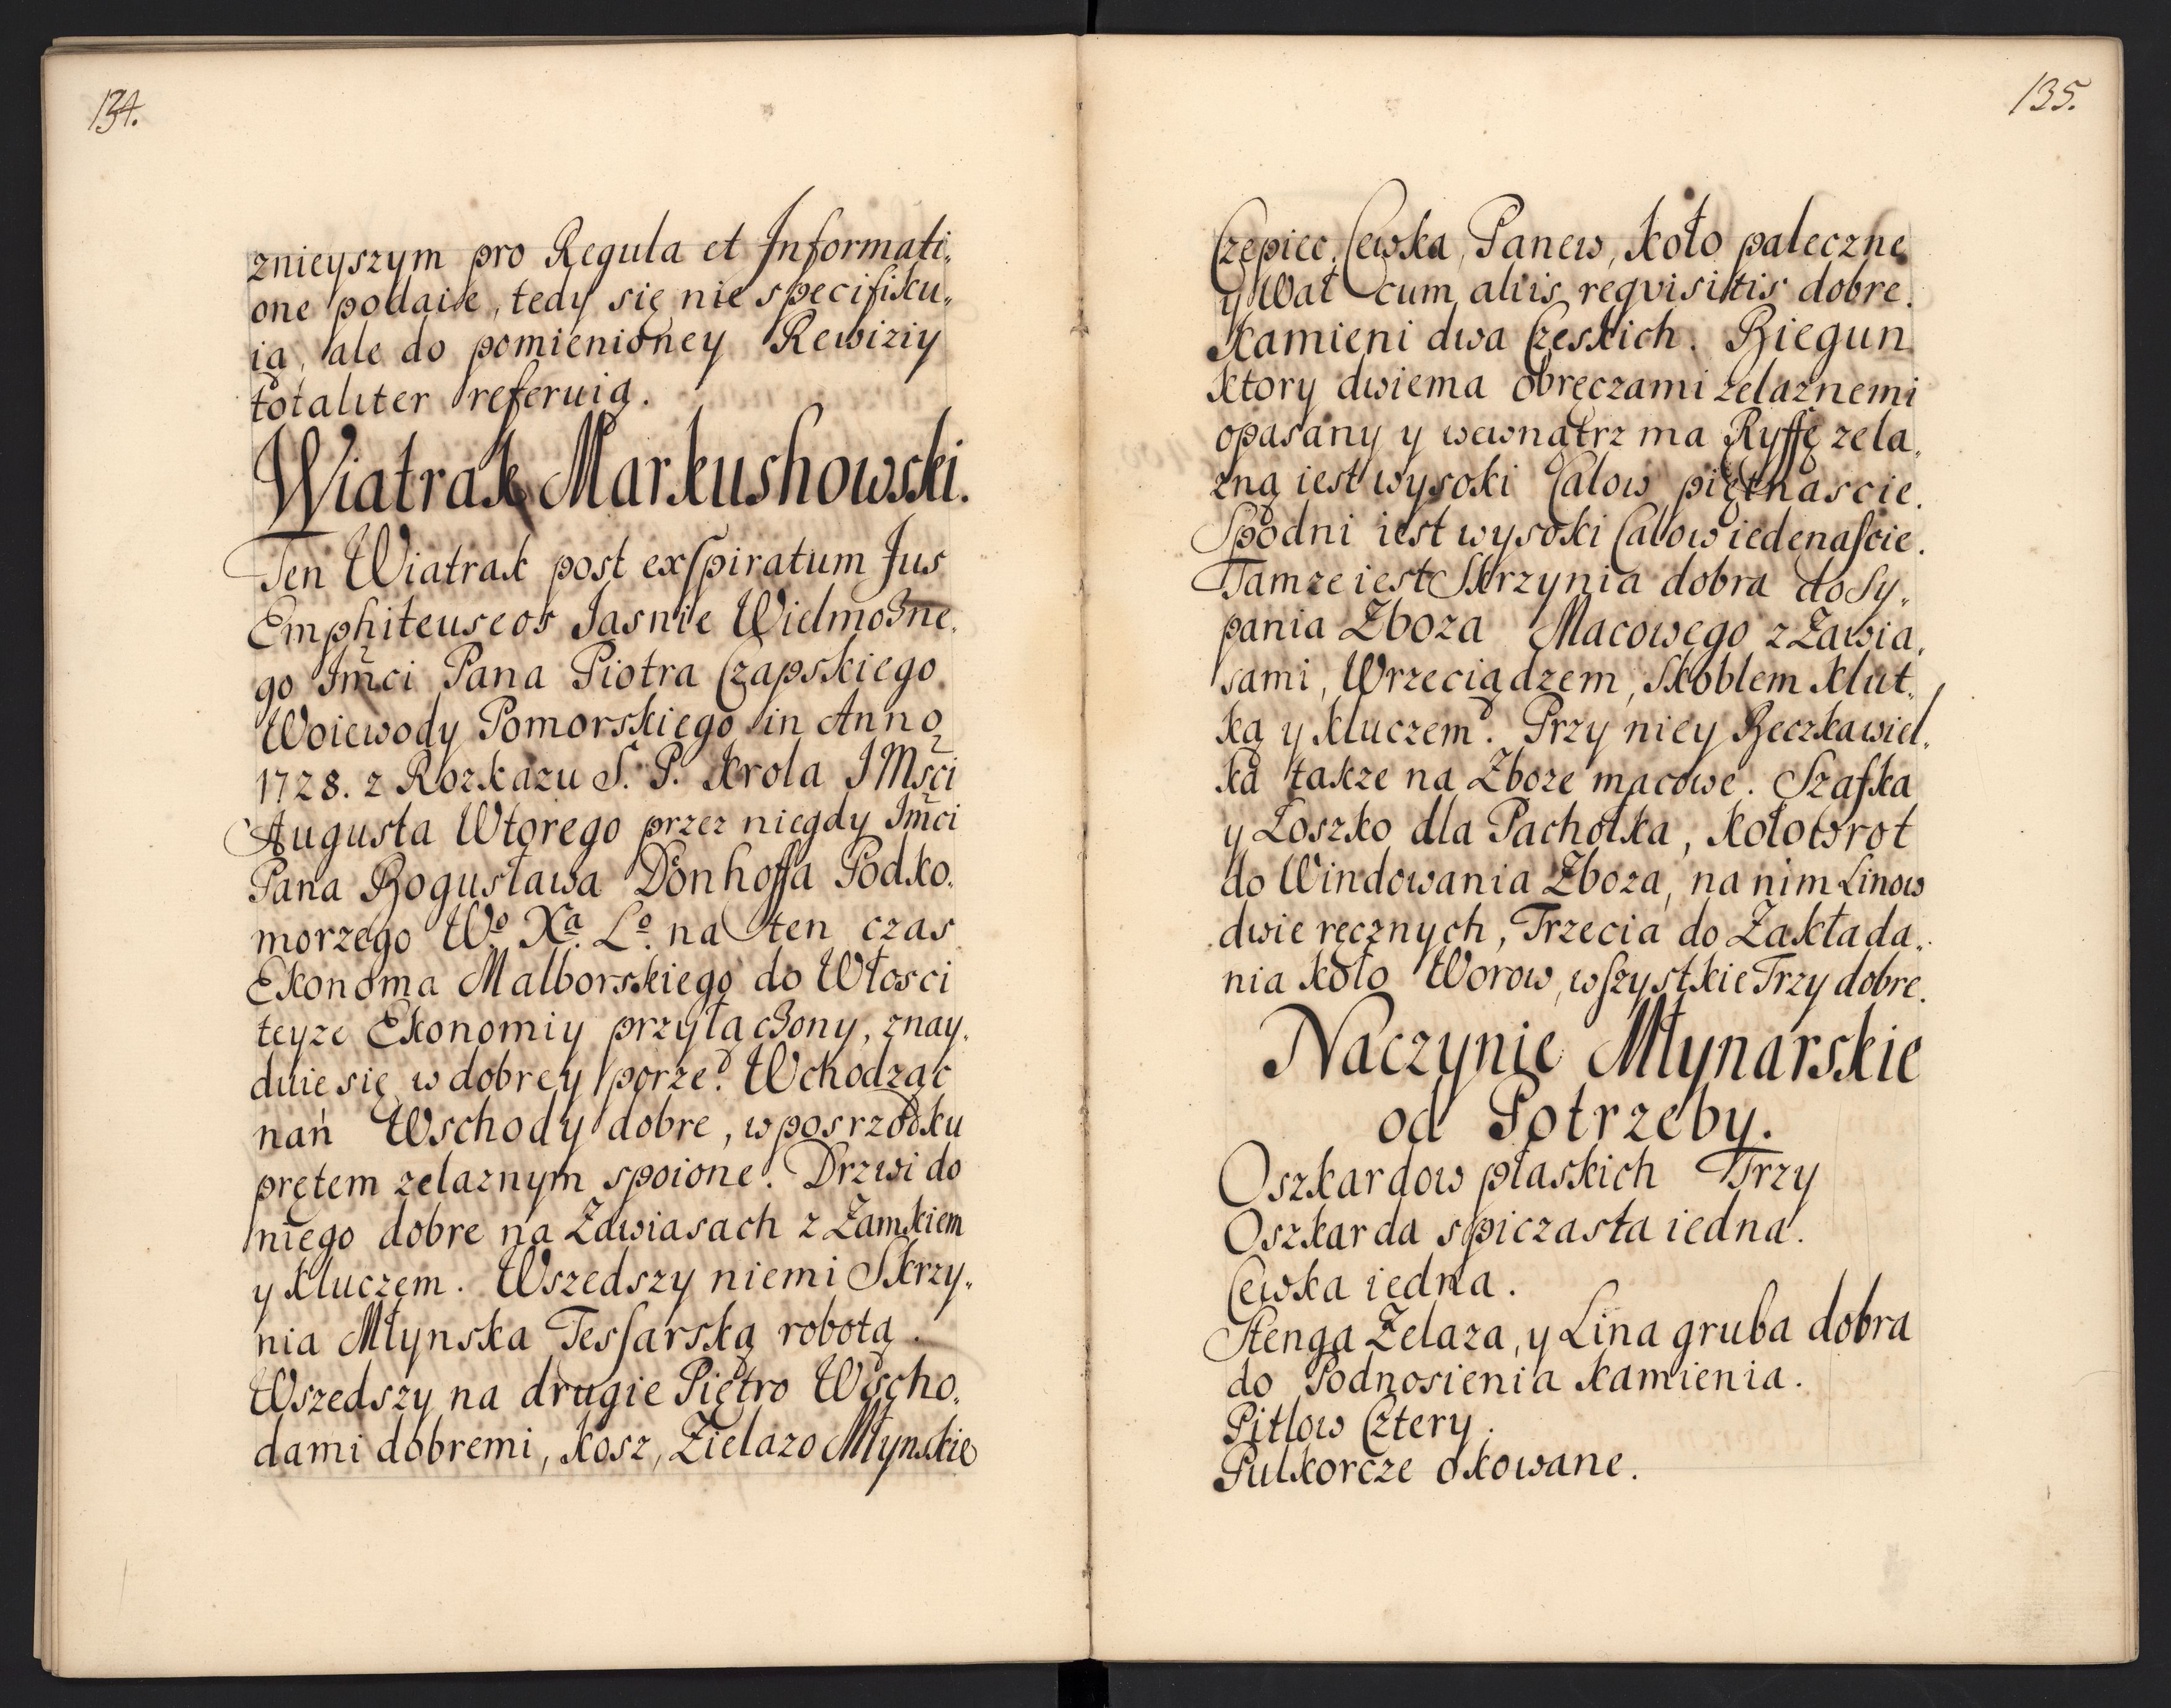 134.
znieyszym pro Regula et Informati„
one podaie, tedy się nie specifiku„
ią, ale do pomienioney Rewiziy
totaliter referuią.
Wiatrak Markushowski.
Ten Wiatrak post exſpiratum Jus
Emphiteuseos Jasnie Wielmożne„
go Jmci Pana Piotra Czapskiego
Woiewody Pomorskiego in Anno
1728. z Rozkazu S. P. Krola JMsci
Augusta Wtorego przez niegdy Jmci
Pana Bogusława Dönhoffa Podko„
morzego Wº. Xª. Lº. na ten czas
Ekonoma Malborskiego do Włosci
teyze Ekonomiy przyłączony, znay„
duie się w dobrey porze. Wchodząc
nań Wschody dobre, w posrzodku
prętem zelaznym spoione. Drzwi do
niego dobre na Zawiasach z Zamkiem
y kluczem. Wszedszy niemi Skrzy„
nia Młynska Tesſarską robotą.
Wszedszy na drugie Piętro Wscho„
dami dobremi, kosz, Zielazo Młynskie
135.
Czepiec, Cewka, Panew, koło paleczne
y Wał cum aliis reqvisitis dobre.
Kamieni dwa Czeskich. Biegun
ktory dwiema obręczami zelaznemi
opasany y wewnątrz ma Ryffę zela„
zną iest wysoki Calow piętnascie.
Spodni iest wysoki Calow iedenaſcie.
Tamze iest Skrzynia dobra do Sy„
pania Zboza Macowego z Zawia„
sami, Wrzeciądzem, Skoblem klut„
ką y kluczem. Przy niey Beczka wiel„
ka takze na Zboze macowe. Szafka
y Łoszko dla Pachołka, kołowrot
do Windowania Zboza, na nim Linow
dwie ręcznych, Trzecia do Zakłada„
nia koło Worow, wſzystkie Trzy dobre.
Naczynie Młynarskie
od Potrzeby.
Oszkardow płaskich Trzy
Oszkarda spiczasta iedna.
Cewka iedna.
Stenga Zelaza, y Lina gruba dobra
do Podnosienia kamienia.
Pitlow Cztery.
Pulkorcze okowane.